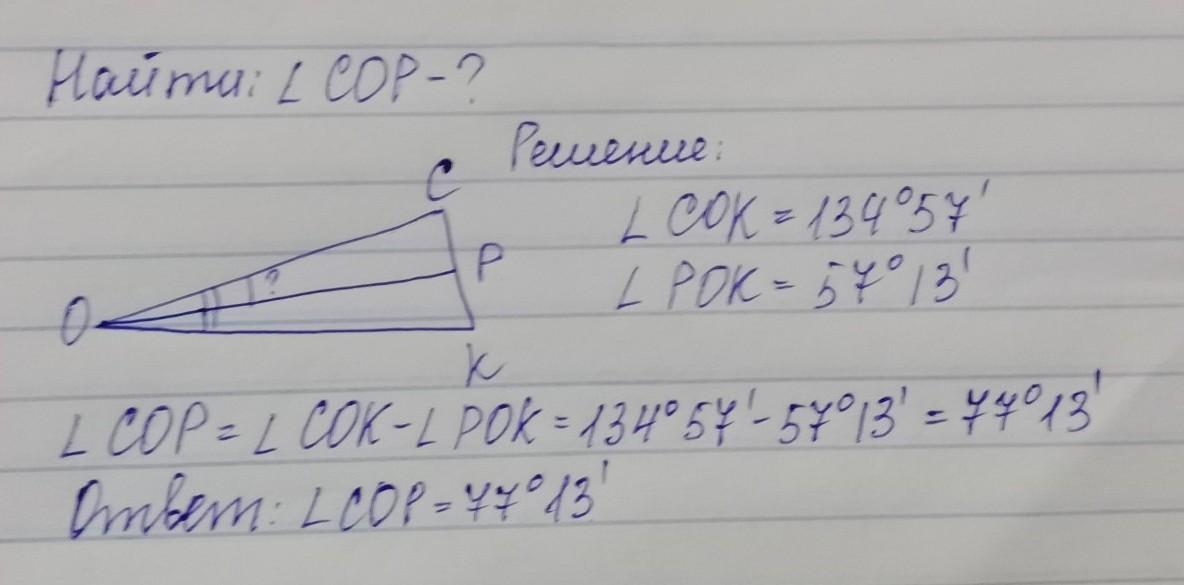 Найти: ∠ COP - ?
Решение:
C
∠ COK = 134°57'
?
P
∠ POK = 57°13'
O
K
∠ COP = ∠ COK - ∠ POK = 134°57' - 57°13' = 77°13'
Ответ: ∠ COP = 77°13'